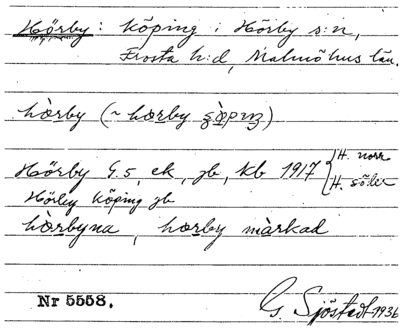 Hörby: köping i Hörby s:n,
Frosta h:d, Malmöhus län.
hòrby (~ hòrby
Hörby G.5, ek, jb, kb 1917 { H. norr
H. söder
Hörby köping jb
hòrbyna, hòrby màrkad
Nr 5558.
G. Sjöstedt 1936